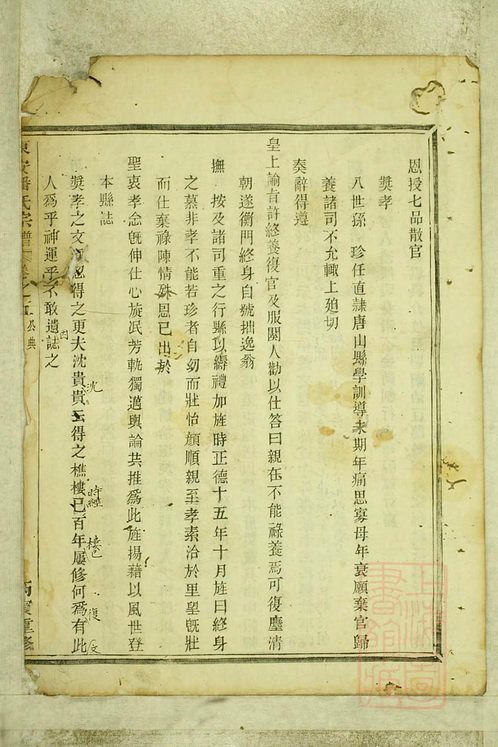 恩授七品散官
奬孝
八世孫　珍任直隷唐山縣學訓導未期年痛思寡母年衰願棄官歸
養諸司不允輙上廹切
奏辭得遵
皇上諭旨許終養復官及服闋人勸以仕答曰親在不能祿養焉可復塵清
朝遂衡門終身自號拙逸翁
撫　按及諸司重之行縣以縟禮加旌時正德十五年十月旌曰終身
之慕非孝不能若珍者自幼而壯怡顔順親至孝素洽於里望旣壯
而仕棄祿陳情殊恩已出於
聖衷孝念旣伸仕心旋泯芳軌獨邁輿論共推爲此旌揚藉以風世登
本縣誌
奬孝之文　忽得之更夫沈貴貴云得之樵樓已百年屢修何爲有此
人爲乎神運乎不敢遺誌之
沈
時經
樓已
復
安潘氏宗譜
公典
重修